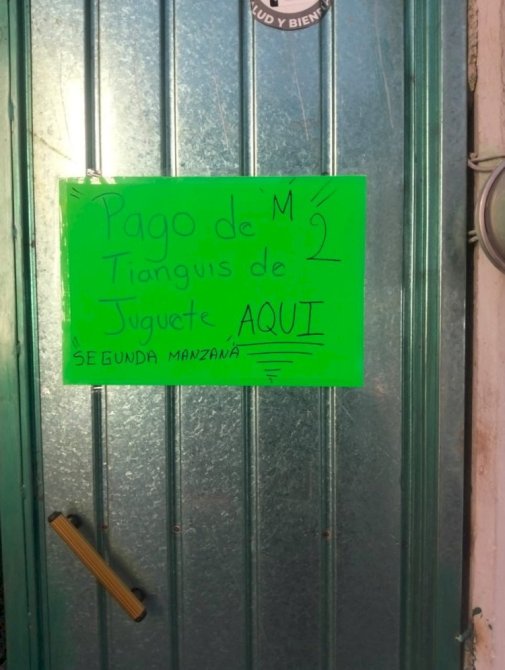 SALUD Y BIENE
Pago de "M"
2
Tianguis de
Juguete AQUI
"SEGUNDA MANZANA"